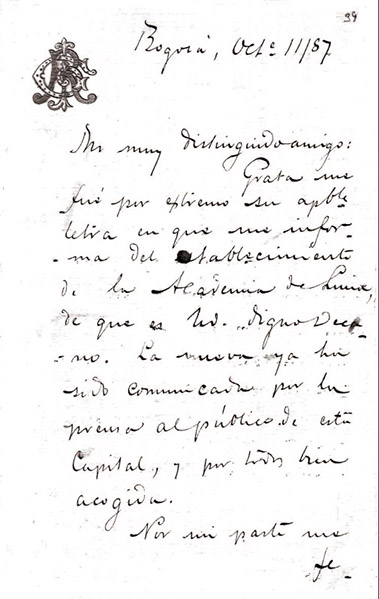 39
Bogotá, Octe. 11/87
Mi muy distinguido amigo:
Grata me
fué por extremo su apble.
letra en que me infor-
-ma del establecimiento
de la Academia de Lima,
de que es Ud. digno Deca-
-no. La nueva ya ha
sido comunicada por la
prensa al público de esta
Capital, y por todos bien
acogida.
Por mi parte me
fe-